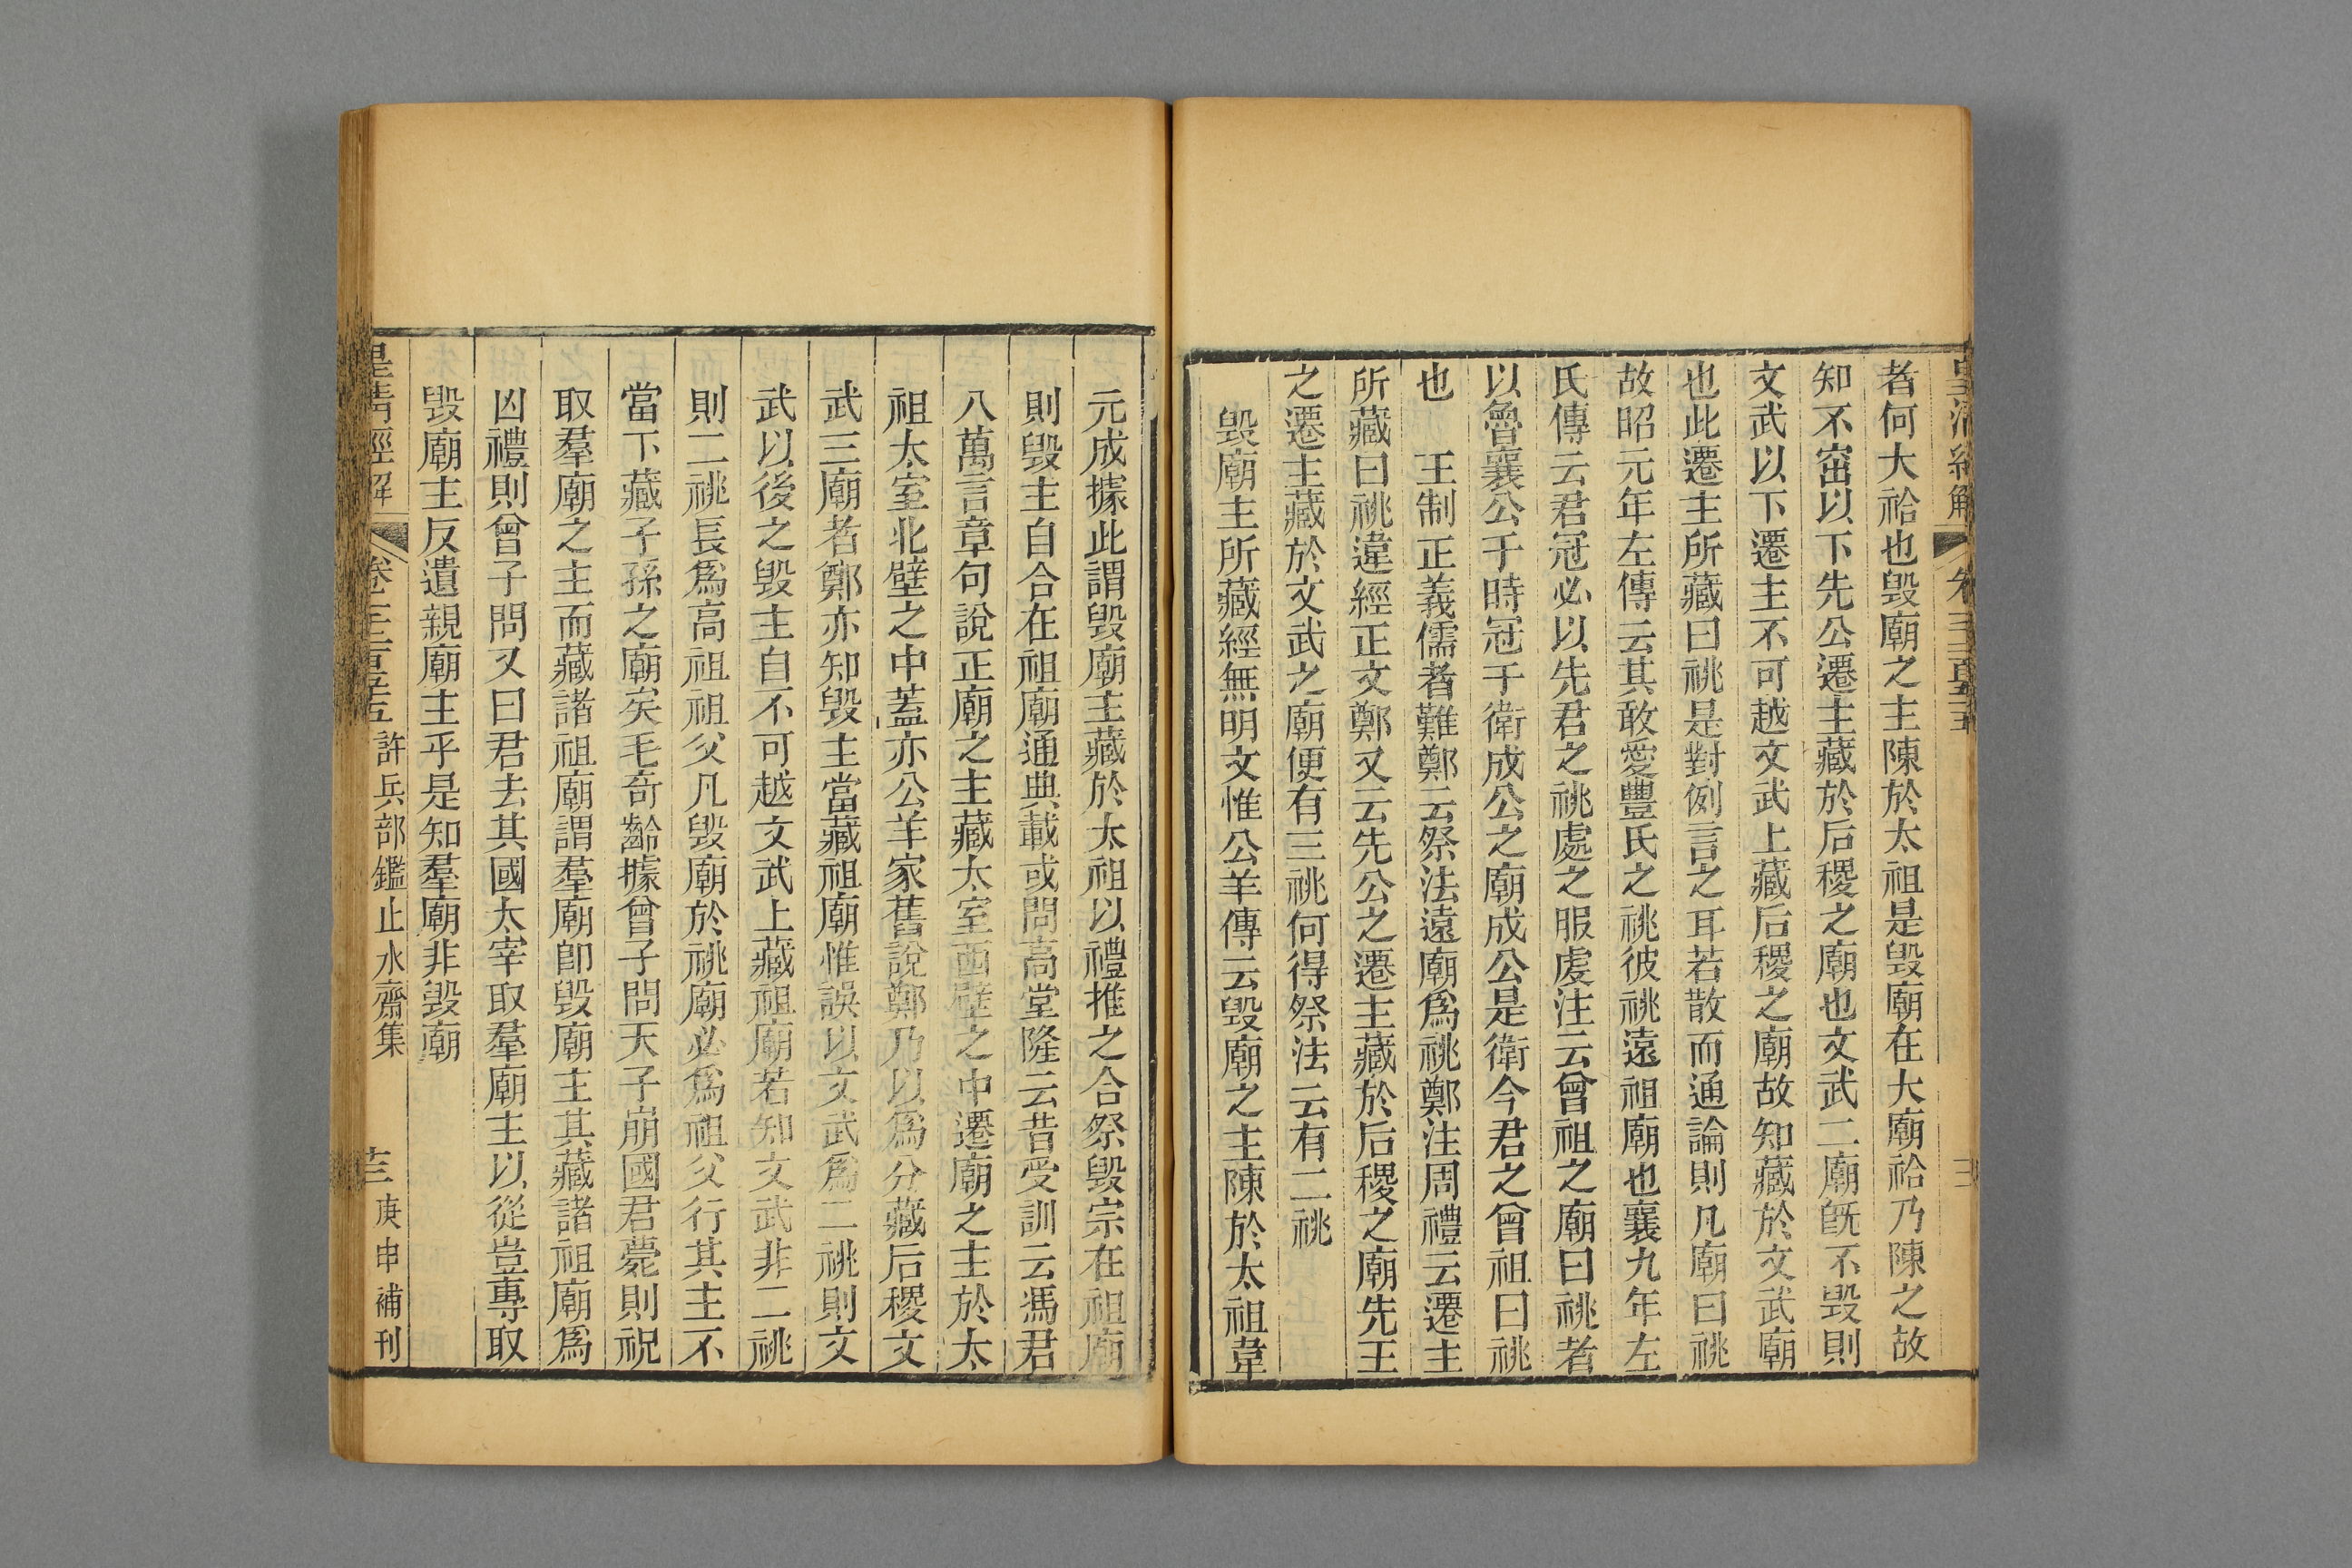 者何大祫也毁廟之主陳於太祖是毁廟在大廟祫乃陳之故
知不窋以下先公遷主藏於后稷之廟也文武二廟既不毁則
文武以下遷主不可越文武上藏后稷之廟故知藏於文武廟
也此遷主所藏曰祧是對例言之耳若散而通論則凡廟曰祧
故昭元年左傳云其敢愛豐氏之祧彼祧遠祖廟也襄九年左
氏傳云君冠必以先君之祧處之服虔注云曾祖之廟曰祧者
以魯襄公于時冠于衛成公之廟成公是衛今君之曾祖曰祧
也　王制正義儒者難鄭云祭法遠廟爲祧鄭注周禮云遷主
所藏曰祧違經正文鄭又云先公之遷主藏於后稷之廟先王
之遷主藏於文武之廟便有三祧何得祭法云有二祧
毁廟主所藏經無明文惟公羊傳云毁廟之主陳於太祖韋
元成據此謂毁廟主藏於太祖以禮推之合祭毁宗在祖廟
則毁主自合在祖廟通典載或問高堂隆云昔受訓云馮君
八萬言章句說正廟之主藏太室西壁之中遷廟之主於太
祖太室北壁之中蓋亦公羊家舊說鄭乃以爲分藏后稷文
武三廟者鄭亦知毁主當藏祖廟惟誤以文武爲二祧則文
武以後之毁主自不可越文武上藏祖廟若知文武非二祧
則二祧長爲高祖祖父凡毁廟於祧廟必爲祖父行其主不
當下藏子孫之廟矣毛奇齡據曾子問天子崩國君薨則祝
取羣廟之主而藏諸祖廟謂羣廟卽毁廟主其藏諸祖廟爲
凶禮則曾子問又曰君去其國太宰取羣廟主以從豈專取
毁廟主反遺親廟主乎是知羣廟非毁廟
皇淸經解　卷　許兵部鑑止水齋集　庚申補刊